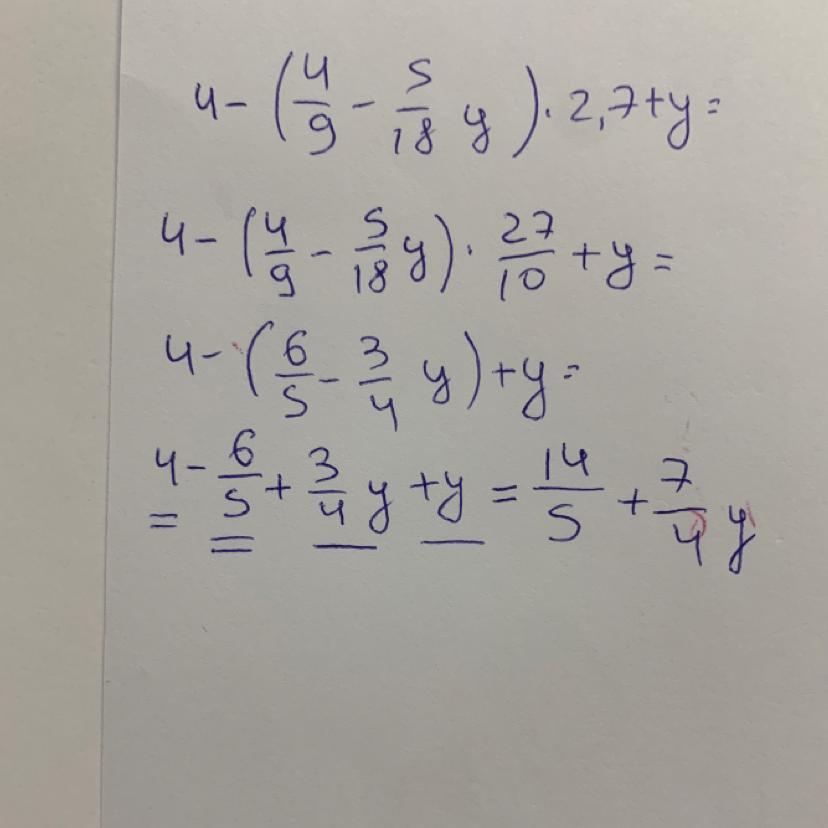 4 - (4/9 - 5/18 y) · 2,7 + y =
4 - (4/9 - 5/18 y) · 27/10 + y =
4 - (6/5 - 3/4 y) + y =
= 4 - 6/5 + 3/4 y + y = 14/5 + 7/4 y